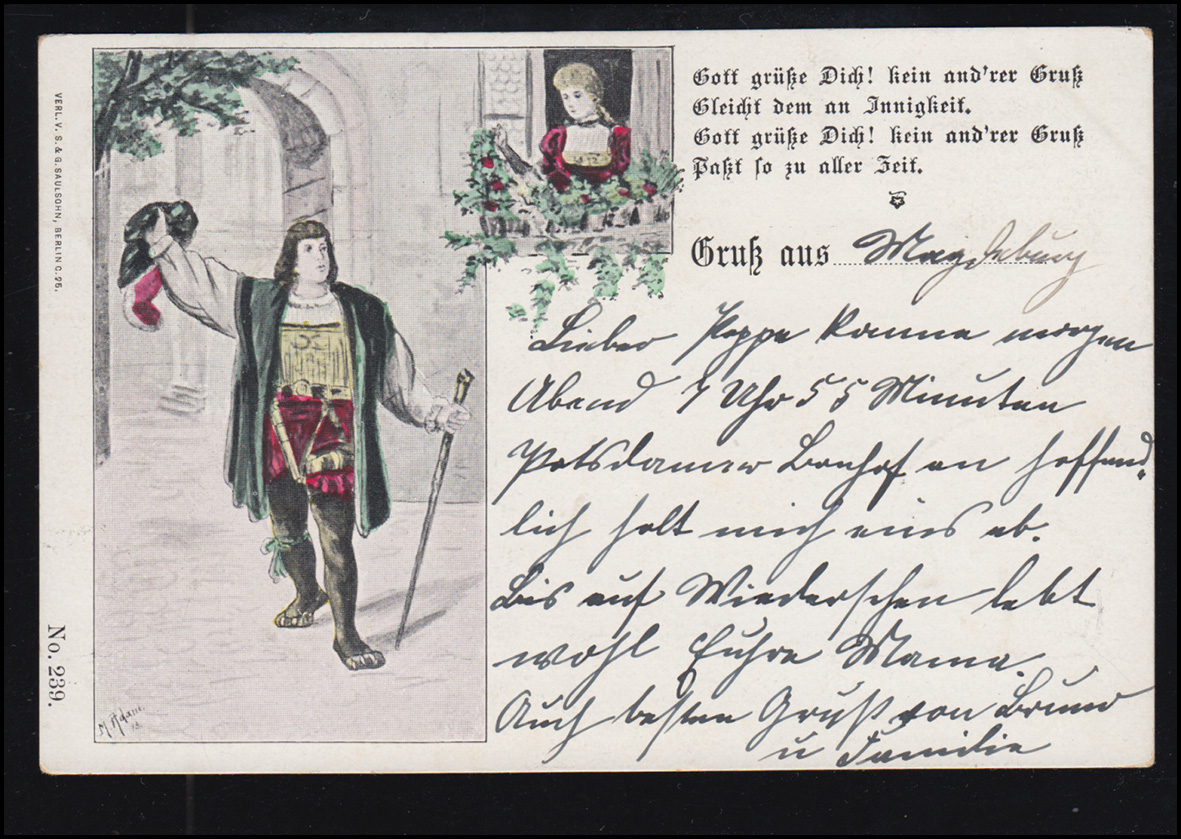 VERL. V. S. & G. SAULSOHN, BERLIN C. 25.
Gott grüße Dich! kein and'rer Gruß
Gleicht dem an Innigkeit.
Gott grüße Dich! kein and'rer Gruß
Paßt so zu aller Zeit.
Gruß aus Magdeburg
Lieber Pappa komme morgen
Abend 7 Uhr 55 Minuten
Potsdamer Banhof an hoffend.
lich holt mich eins ab.
Bis auf Wiedersehen lebt
wohl Euhre Mama.
Auch besten Gruß von Bruno
u Familie
No. 239.